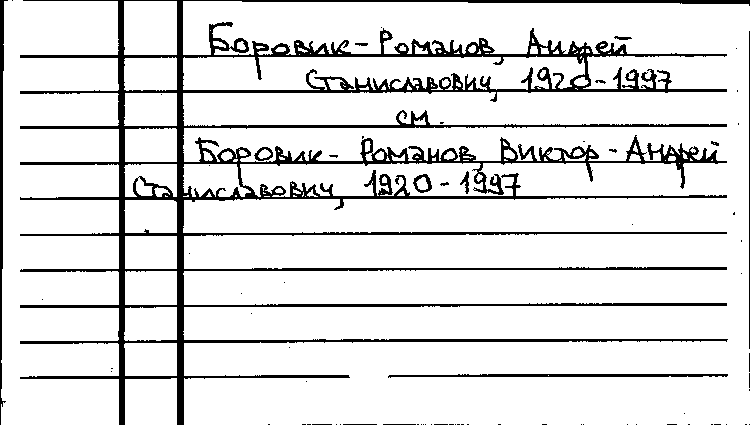 Боровик-Романов, Андрей
Станиславович, 1920-1997
см.
Боровик-Романов, Виктор-Андрей
Станиславович, 1920-1997